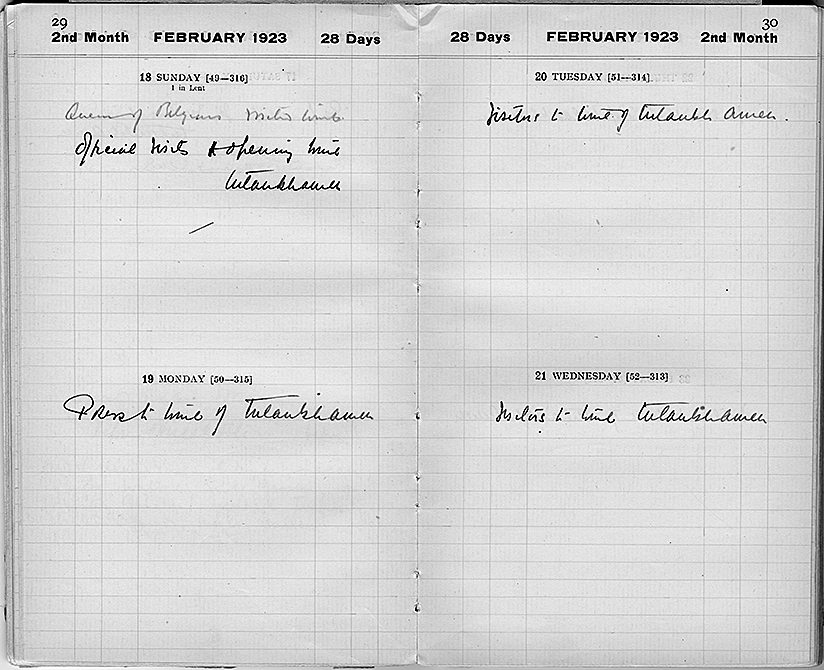 29
2nd Month FEBRUARY 1923 28 Days
18 SUNDAY [49—316]
1 in Lent
Queen of Belgians visited tomb
Official visits & opening tomb
Tutankhamen
19 MONDAY [50—315]
Press to tomb of Tutankhamen
30
28 Days FEBRUARY 1923 2nd Month
20 TUESDAY [51—314]
Visitors to tomb of Tutankh Amen.
21 WEDNESDAY [52—313]
Visitors to tomb Tutankhamen